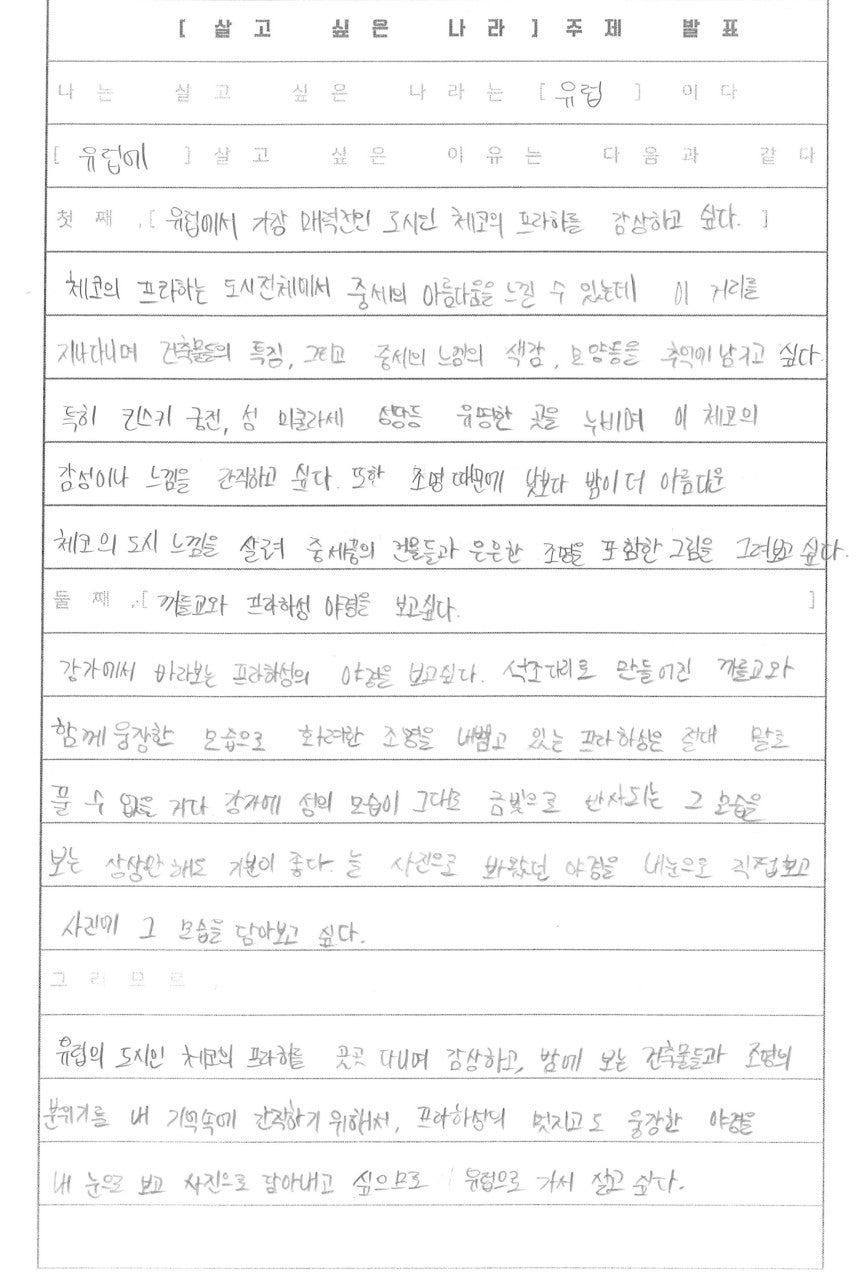 [ 살고 싶은 나라 ] 주제 발표
나는 살고 싶은 나라는 [ 유럽 ] 이다
[ 유럽에 ] 살고 싶은 이유는 다음과 같다
첫째, [ 유럽에서 가장 매력적인 도시인 체코의 프라하를 감상하고 싶다. ]
체코의 프라하는 도시전체에서 중세의 아름다움을 느낄 수 있는데 이 거리를
지나다니며 건축물들의 특징, 그리고 중세의 느낌의 색감, 모양등을 추억에 남기고 싶다.
특히 킨스키 궁전, 성 미쿨라세 성당등 유명한 곳을 누비며 이 체코의
감성이나 느낌을 간직하고 싶다. 또한 조명 때문에 낮보다 밤이 더 아름다운
체코의 도시 느낌을 살려 중세풍의 건물들과 은은한 조명을 포함한 그림을 그려보고 싶다.
둘째, [ 까를교와 프라하성 야경을 보고싶다. ]
강가에서 바라보는 프라하성의 야경을 보고싶다. 석조다리로 만들어진 까를교와
함께 웅장한 모습으로 화려한 조명을 내뿜고 있는 프라하성은 절대 말로
풀 수 없을 거다 강가에 성의 모습이 그대로 금빛으로 반사되는 그 모습을
보는 상상만 해도 기분이 좋다. 늘 사진으로 봐왔던 야경을 내눈으로 직접보고
사진에 그 모습을 담아보고 싶다.
그러므로,
유럽의 도시인 체코의 프라하를 곳곳 다니며 감상하고, 밤에 보는 건축물들과 조명의
분위기를 내 기억속에 간직하기 위해서, 프라하성의 멋지고도 웅장한 야경을
내 눈으로 보고 사진으로 담아내고 싶으므로 유럽으로 가서 살고 싶다.